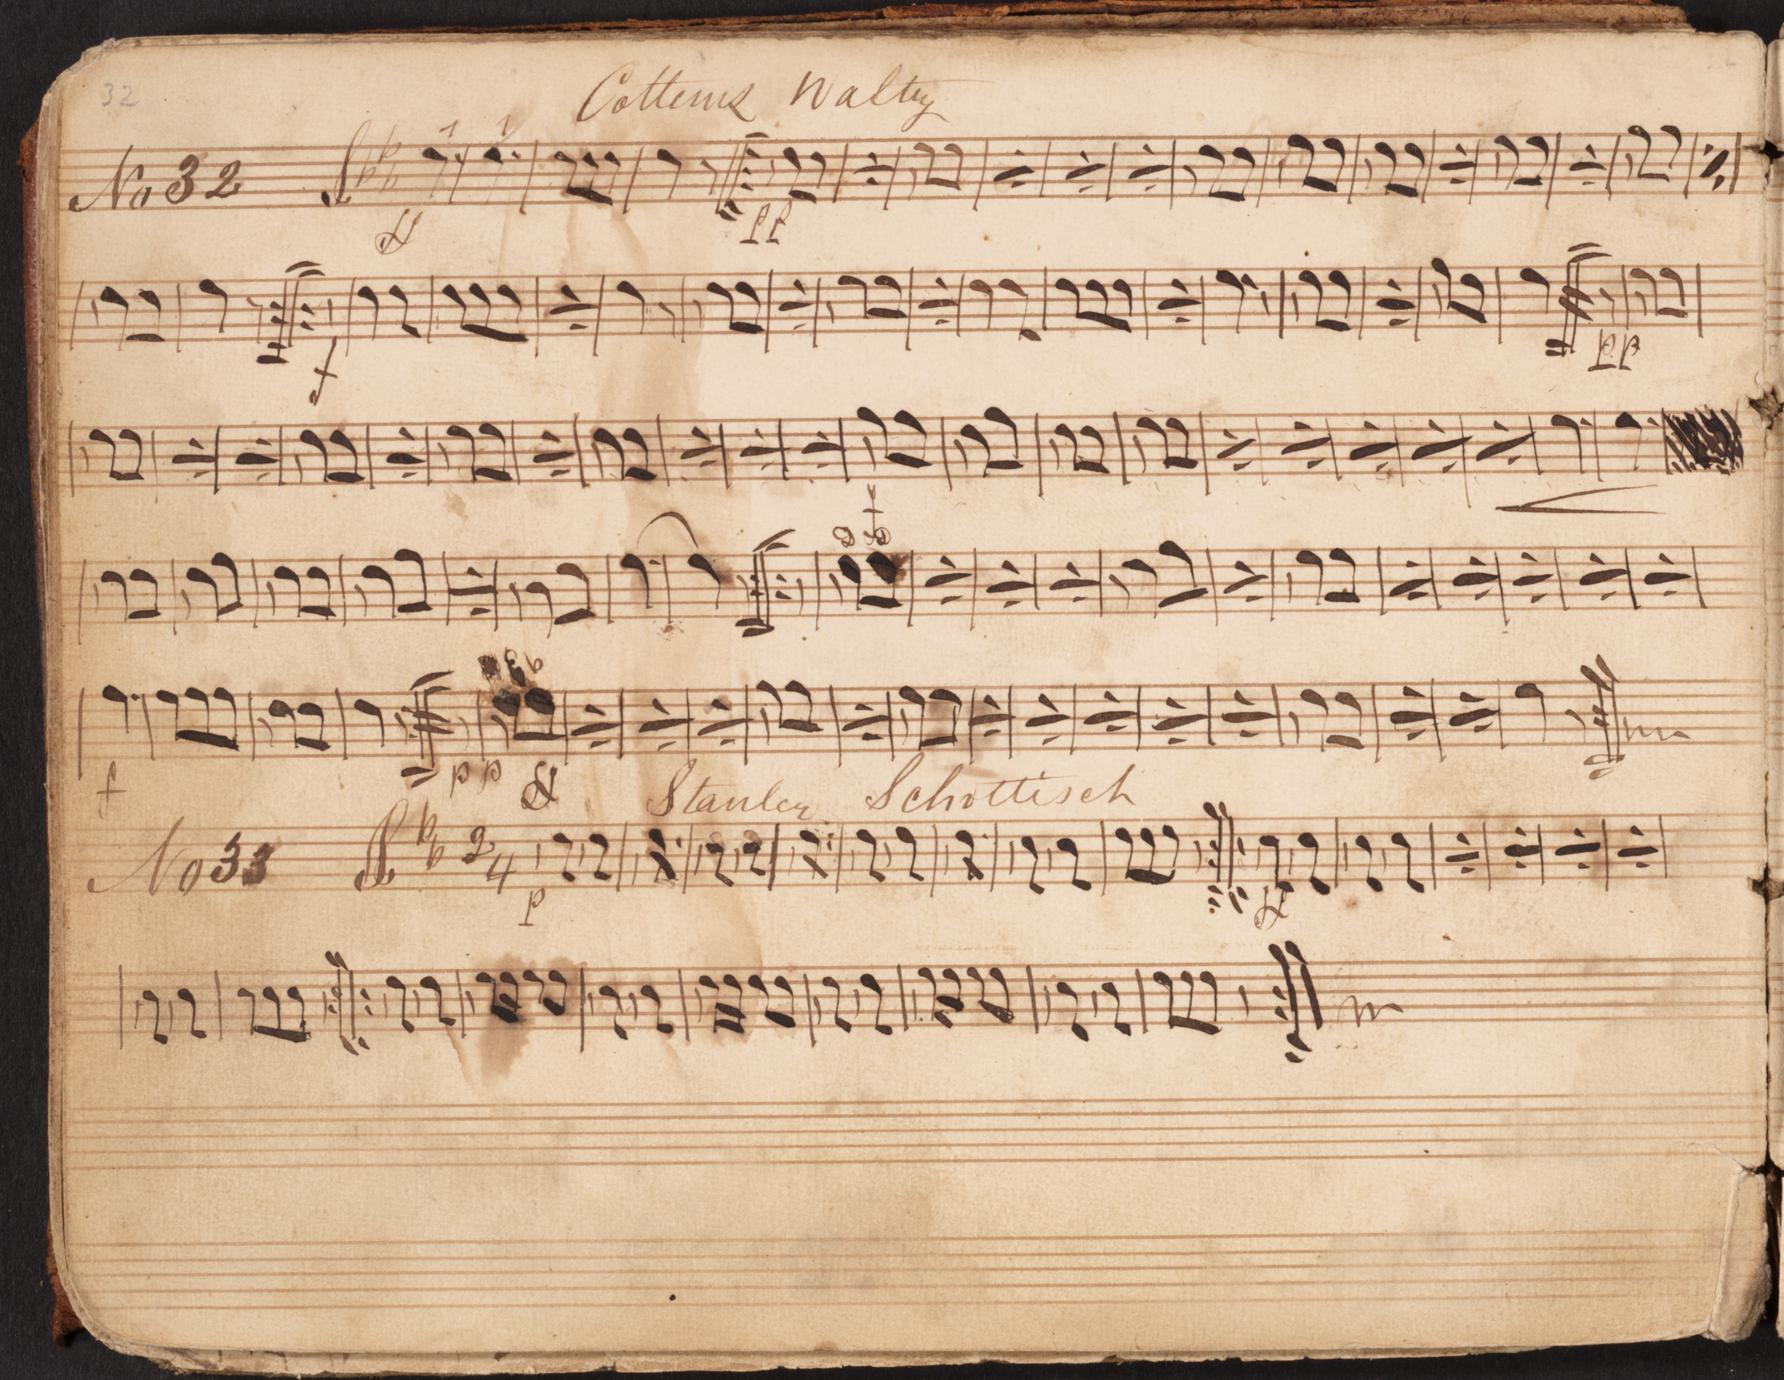 32
Cottems Waltz
No 32
ff
pp
f
pp
f
f
pp ff
Stanley Schottisch
No 33 2 4
p
ff